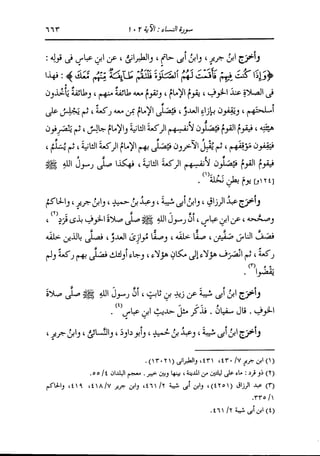 سورة النساء : الآية ١٠٢ ٦٦٣
وأخرج ابنُ جريرٍ ، وابنُ أبى حاتمٍ ، والطبرانىُّ ، عن ابنِ عباسٍ فى قولِه :
﴿ وَإِذَا كُنتَ فِيهِمْ فَأَقَمْتَ لَهُمُ ٱلصَّلَوٰةَ فَلْتَقُمْ طَآئِفَةٌ مِّنْهُم مَّعَكَ ﴾ : فهذا
فى الصلاةِ عندَ الخوفِ ، يقومُ الإمامُ ، وتقومُ معه طائفةٌ منهم ، وطائفةٌ يأخذون
أسلحتَهم ، ويقفون بإزاءِ العدوِّ ، فيُصلِّى الإمامُ بمن معه ركعةً ، ثم يجلِسُ على
هيئتِه ، فيقومُ القومُ فيُصلُّون لأنفسِهم الركعةَ الثانيةَ والإمامُ جالسٌ ، ثم يَنصرِفون
فيقِفون موقِفَهم ، ثم يُقبِلُ الآخرون فيُصلِّى بهم الإمامُ الركعةَ الثانيةَ ، ثم يُسلِّمُ ،
فيقومُ القومُ فيُصلُّون لأنفسِهم الركعةَ الثانيةَ ، فهكذا صلَّى رسولُ اللهِ ﷺ
[١٢٤و] يومَ بطنِ نخلةَ(١) .
وأخرج عبدُ الرزاقِ ، وابنُ أبى شيبةَ ، وعبدُ بنُ حميدٍ ، وابنُ جريرٍ ، والحاكمُ
وصحَّحه ، عن ابنِ عباسٍ ، أنَّ رسولَ اللهِ ﷺ صلَّى صلاةَ الخوفِ بذى قَرَدٍ(٢) ،
فصَفَّ الناسَ صَفَّين ، صفًّا خلفَه ، وصفًّا مُوازِىَ العدوِّ ، فصلَّى بالذين خلفَه
ركعةً ، ثم انصرَف هؤلاء إلى مكانِ هؤلاء ، وجاء أولئك فصلَّى بهم ركعةً ولم
يَقْضُوا(٣) .
وأخرج ابنُ أبى شيبةَ عن زيدِ بنِ ثابتٍ ، أنَّ رسولَ اللهِ ﷺ صلَّى صلاةَ
الخوفِ . قال سفيانُ . فذكَر مثلَ حديثِ ابنِ عباسٍ(٤) .
وأخرج ابنُ أبى شيبةَ ، وعبدُ بنُ حُمَيدٍ ، وأبو داودَ ، والنسائىُّ ، وابنُ جريرٍ ،
(١) ابن جرير ٧/ ٤٣٠، ٤٣١، والطبرانى (١٣٠٢١) .
(٢) ذو قرد : ماء على ليلتين من المدينة ، بينها وبين خيبر . معجم البلدان ٤/ ٥٥.
(٣) عبد الرزاق (٤٢٥١)، وابن أبى شيبة ٢/ ٤٦١، وابن جرير ٧/ ٤١٨، ٤١٩، والحاكم
١/ ٣٣٥.
(٤) ابن أبى شيبة ٢/ ٤٦١.